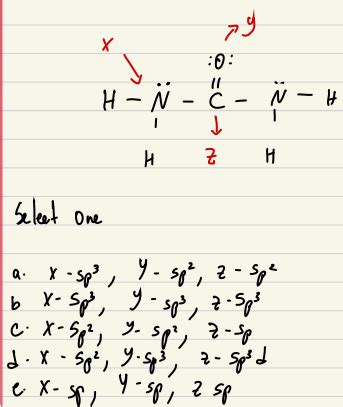 x y
:O:
H - N̈ - C - N̈ - H
H z H
Select one
a. x - sp³, y - sp², z - sp²
b x - sp³, y - sp³, z - sp³
c. x - sp², y - sp², z - sp
d. x - sp², y - sp³, z - sp³d
e x - sp, y - sp, z sp